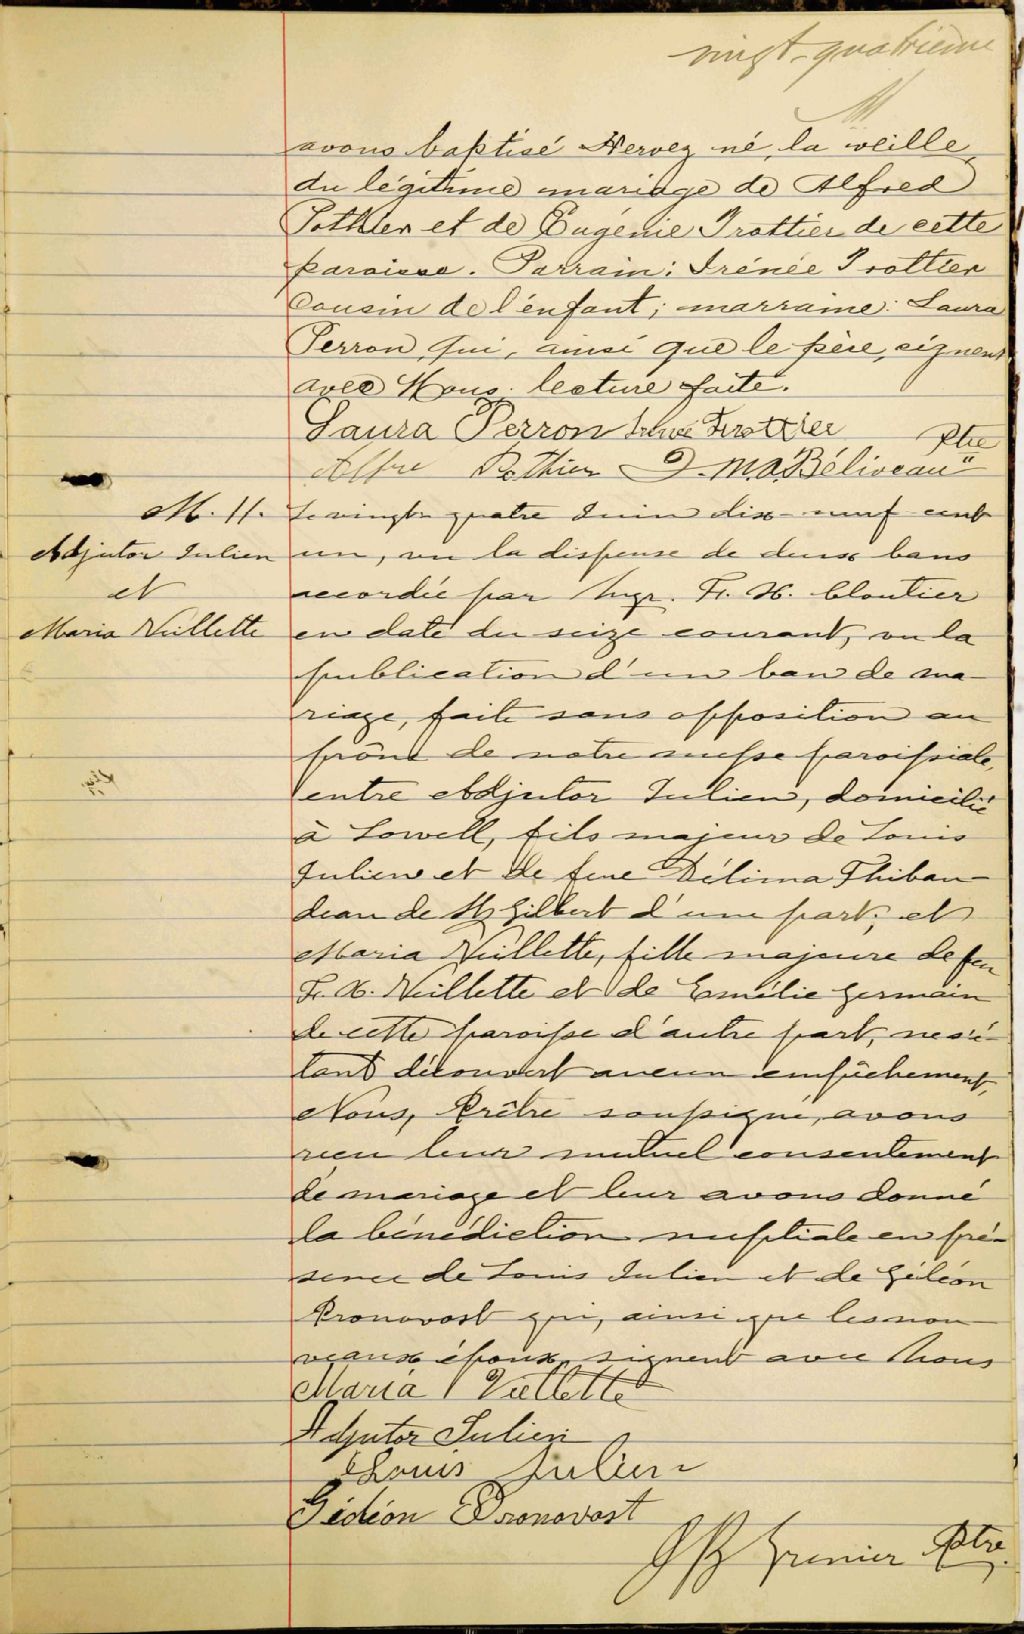 vingt-quatrième
avons baptisé Hervez né, la veille,
du légitime mariage de Alfred
Pothier et de Eugénie Trottier de cette
paroisse. Parrain: Irénée Trottier
cousin de l'enfant; marraine: Laura
Perron, qui, ainsi que le père, signent
avec Nous. lecture faite.
Laura Perron Irénée Trottier
Ptre
Alfre Pothier D. M. A. Béliveau
M. 11.
Adjutor Julien
et
Maria Veillette
Le vingt-quatre Juin dix-neuf cent
un, vu la dispense de deux bans
accordée par Mgr. F. X. Cloutier
en date du seize courant, vu la
publication d'un ban de ma-
riage, faite sans opposition au
prône de notre messe paroissiale,
entre Adjutor Julien, domicilié
à Lowell, fils majeur de Louis
Julien et de feue Délima Thibau-
deau de St Gilbert d'une part; et
Maria Veillette, fille majeure de feu
F. X. Veillette et de Emélie Germain
de cette paroisse d'autre part, ne s'é-
tant découvert aucun empêchement,
Nous, Prêtre soussigné, avons
reçu leur mutuel consentement
de mariage et leur avons donné
la bénédiction nuptiale en pré-
sence de Louis Julien et de Gédéon
Pronovost qui, ainsi que les nou-
veaux époux, signent avec Nous
Maria Veillette
Adjutor Julien
Louis Julien
Gédéon Pronovost
J B Grenier Ptre.